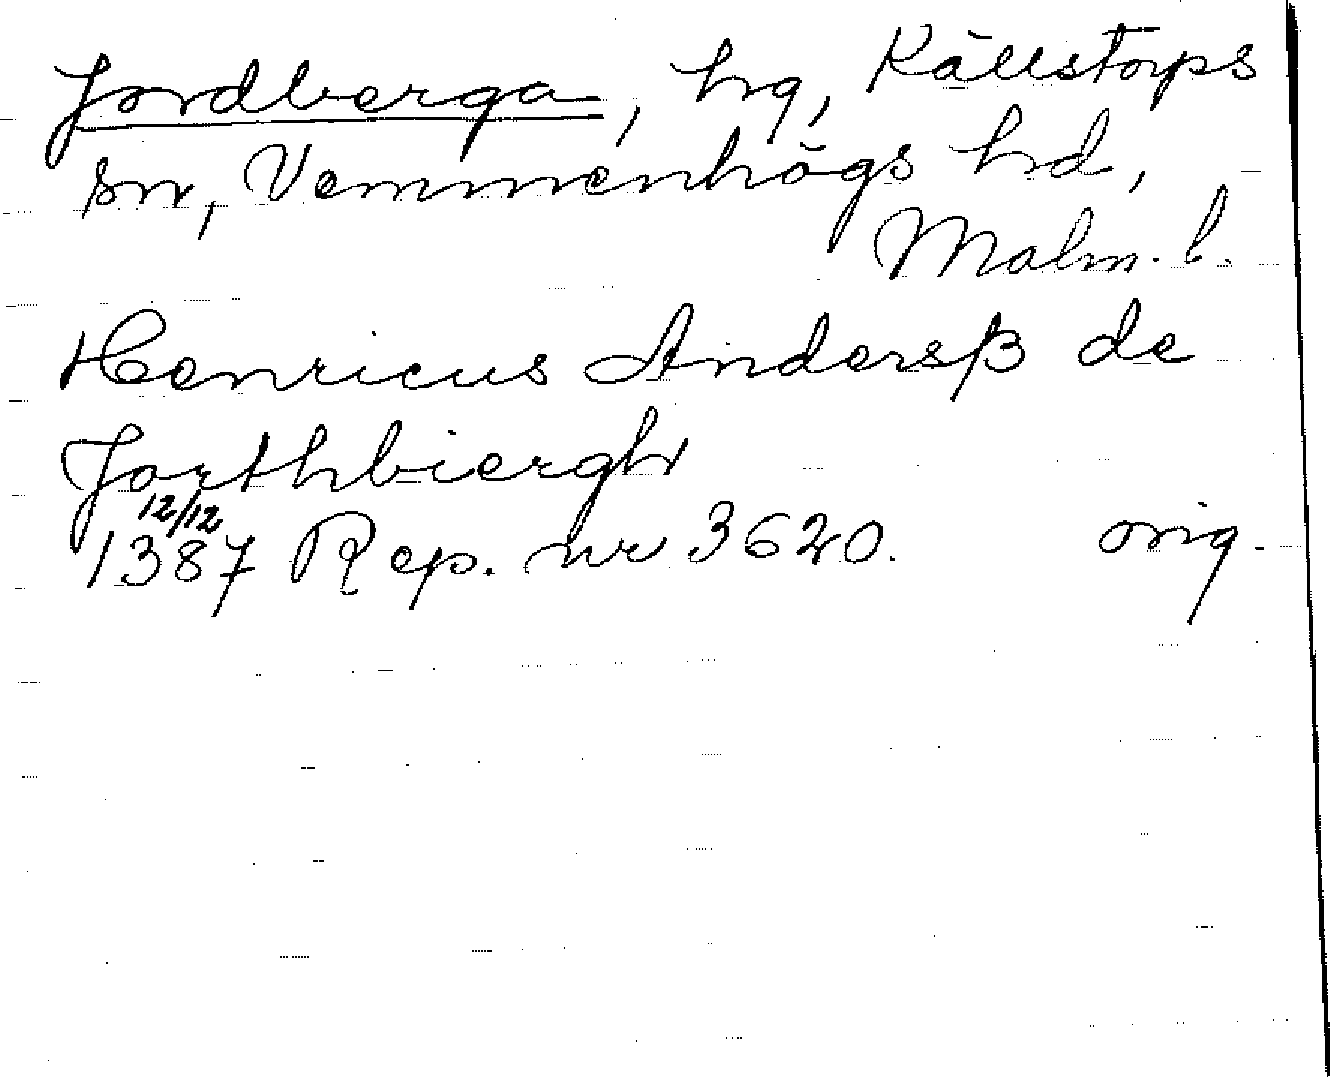 Jordberga, hg, Källstorps
sn, Vemmenhögs hd,
Malm. l.
Henricus Andersß de
Jorthbiergh
12/12
1387 Rep. nr 3620. orig.